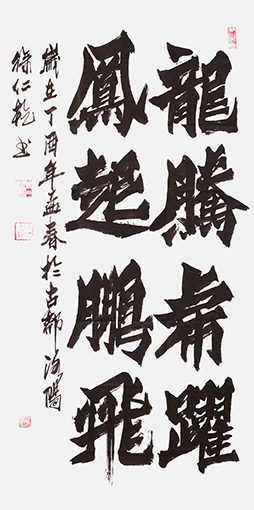 龍騰虎躍
鳳起鵬飛
歲在丁酉年孟春於古都洛陽
徐仁乾書